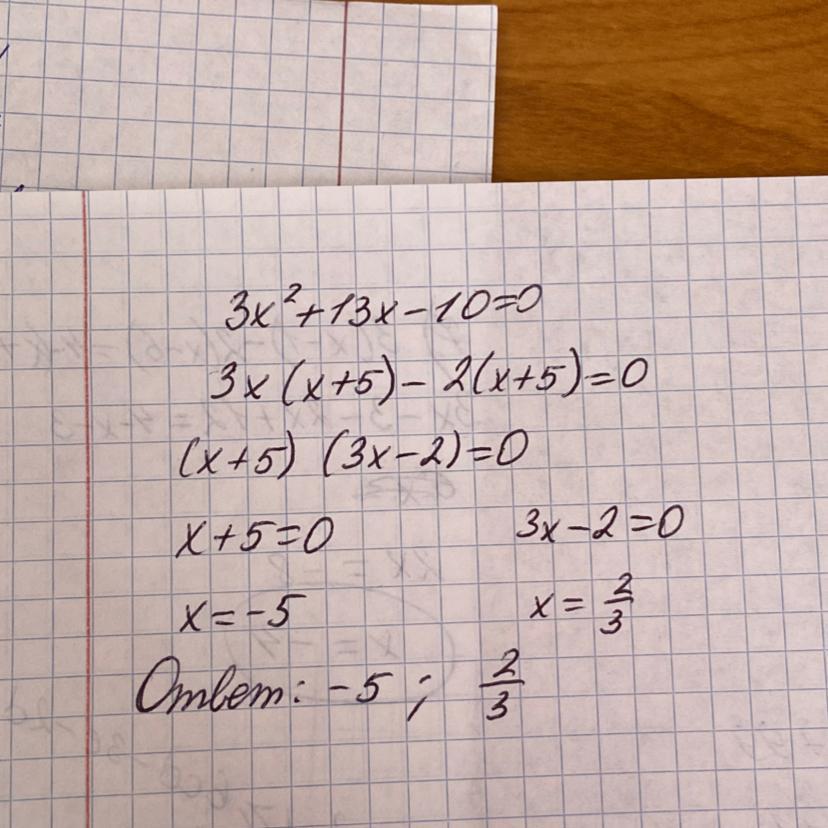 3x²+13x-10=0
3x(x+5)-2(x+5)=0
(x+5) (3x-2)=0
x+5=0 3x-2=0
x=-5 x=2/3
Ответ: -5; 2/3